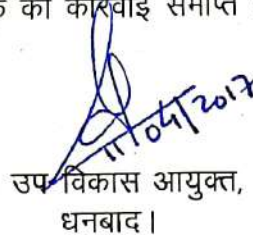 की कार्रवाई समाप्त
11/04/2017
उप विकास आयुक्त,
धनबाद।